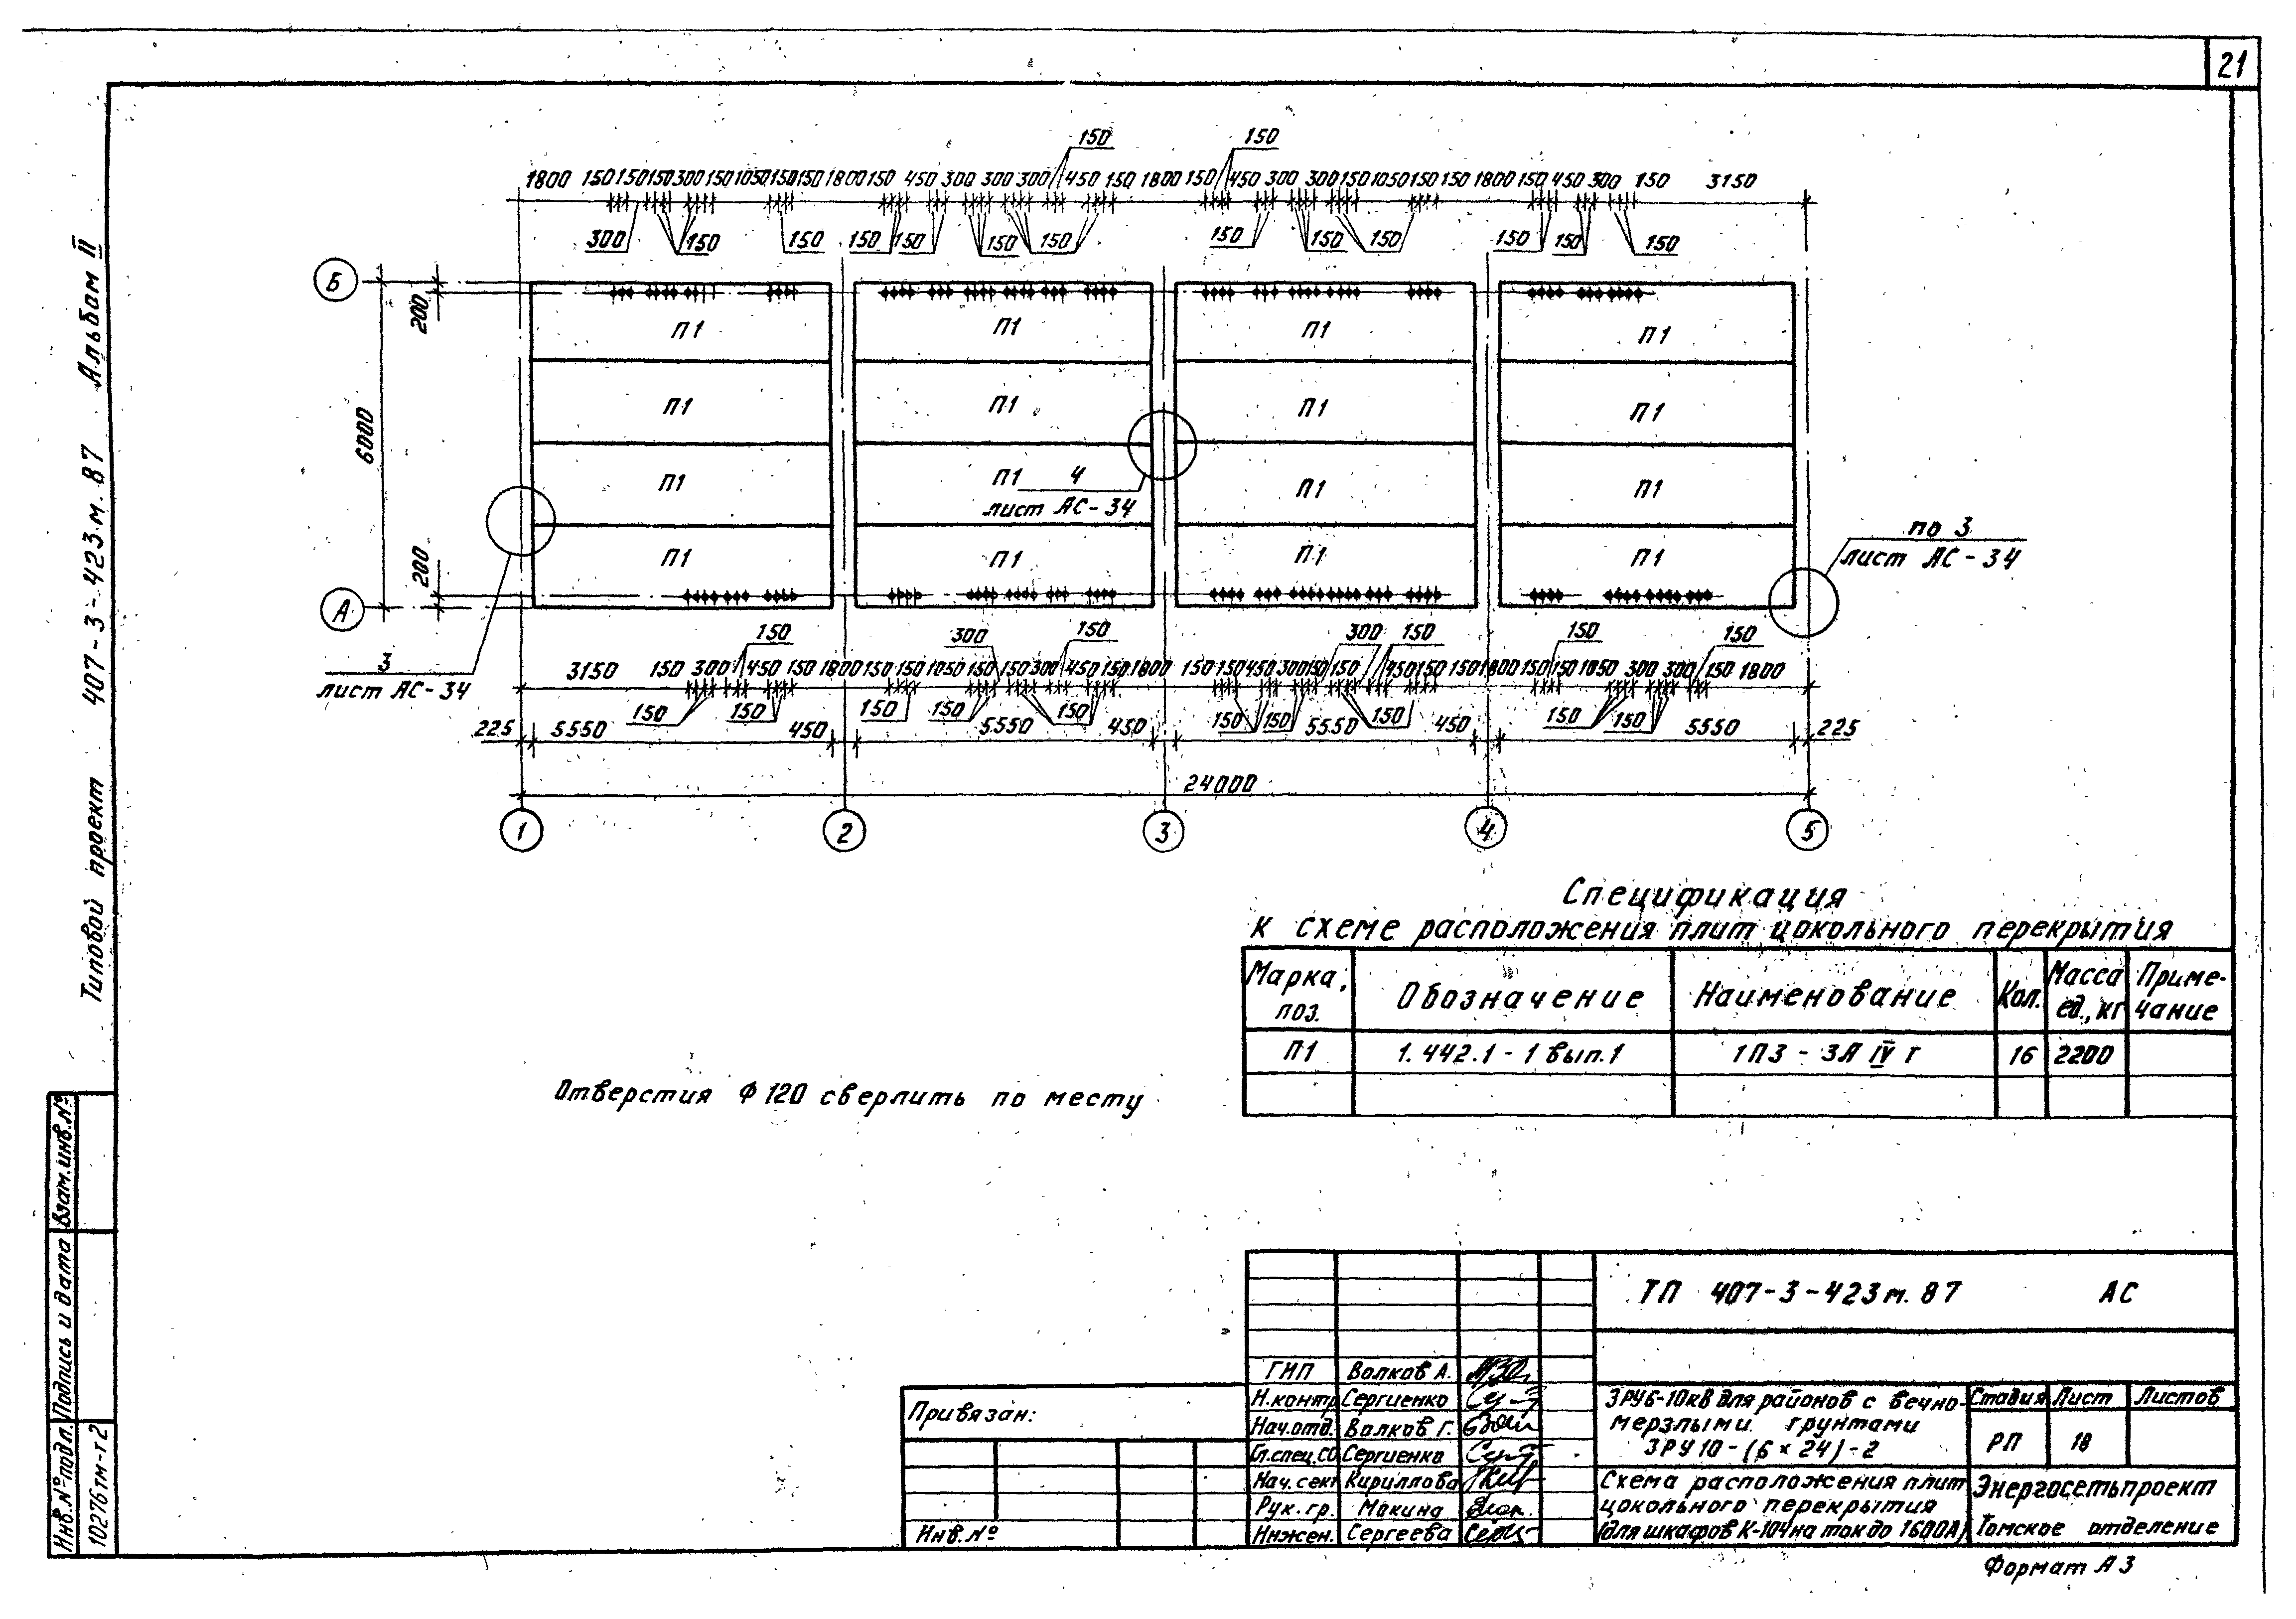 21
Типовой проект 407-3-423м.87 Альбом II
150 150
1800 150 150 150 300 150 1050 150 150 1800 150 450 300 300 300 450 150 1800 150 450 300 300 150 1050 150 150 1800 150 450 300 150 3150
300 150 150 150 150 150 150 150 150 150 150 150 150
Б
200
П1 П1 П1 П1
6000
П1 П1 П1 П1
П1 П1 П1 П1
4
лист АС-34
по 3
лист АС-34
200
П1 П1 П1 П1
А
3
лист АС-34
150 300 150 300 150 150 150
3150 150 300 450 150 1800 150 150 1050 150 150 300 450 150 1800 150 150 450 300 150 150 450 150 150 1800 150 150 1050 300 300 150 1800
150 150 150 150 150 150 150 150 150 150
225 5550 450 5550 450 5550 450 5550 225
24000
1 2 3 4 5
Спецификация
к схеме расположения плит цокольного перекрытия
Марка, поз. Обозначение Наименование Кол. Масса ед., кг Приме-чание
П1 1.442.1-1 вып.1 1П3-3А IV т 16 2200
Отверстия Ф120 сверлить по месту
Взам.инв.№
Подпись и дата
Инв.№ подл.
10276тм-т2
ТП 407-3-423м.87 АС
Привязан:
Инв.№
ГИП Волков А.
Н.контр Сергиенко
Нач.отд. Волков Г.
Гл.спец.СО Сергиенко
Нач.сект Кириллова
Рук.гр. Макина
Инжен. Сергеева
ЗРУ6-10кВ для районов с вечно-
мерзлыми грунтами
ЗРУ10-(6×24)-2
Стадия Лист Листов
РП 18
Схема расположения плит
цокольного перекрытия
(для шкафов К-104 на ток до 1600А)
Энергосетьпроект
Томское отделение
Формат А3